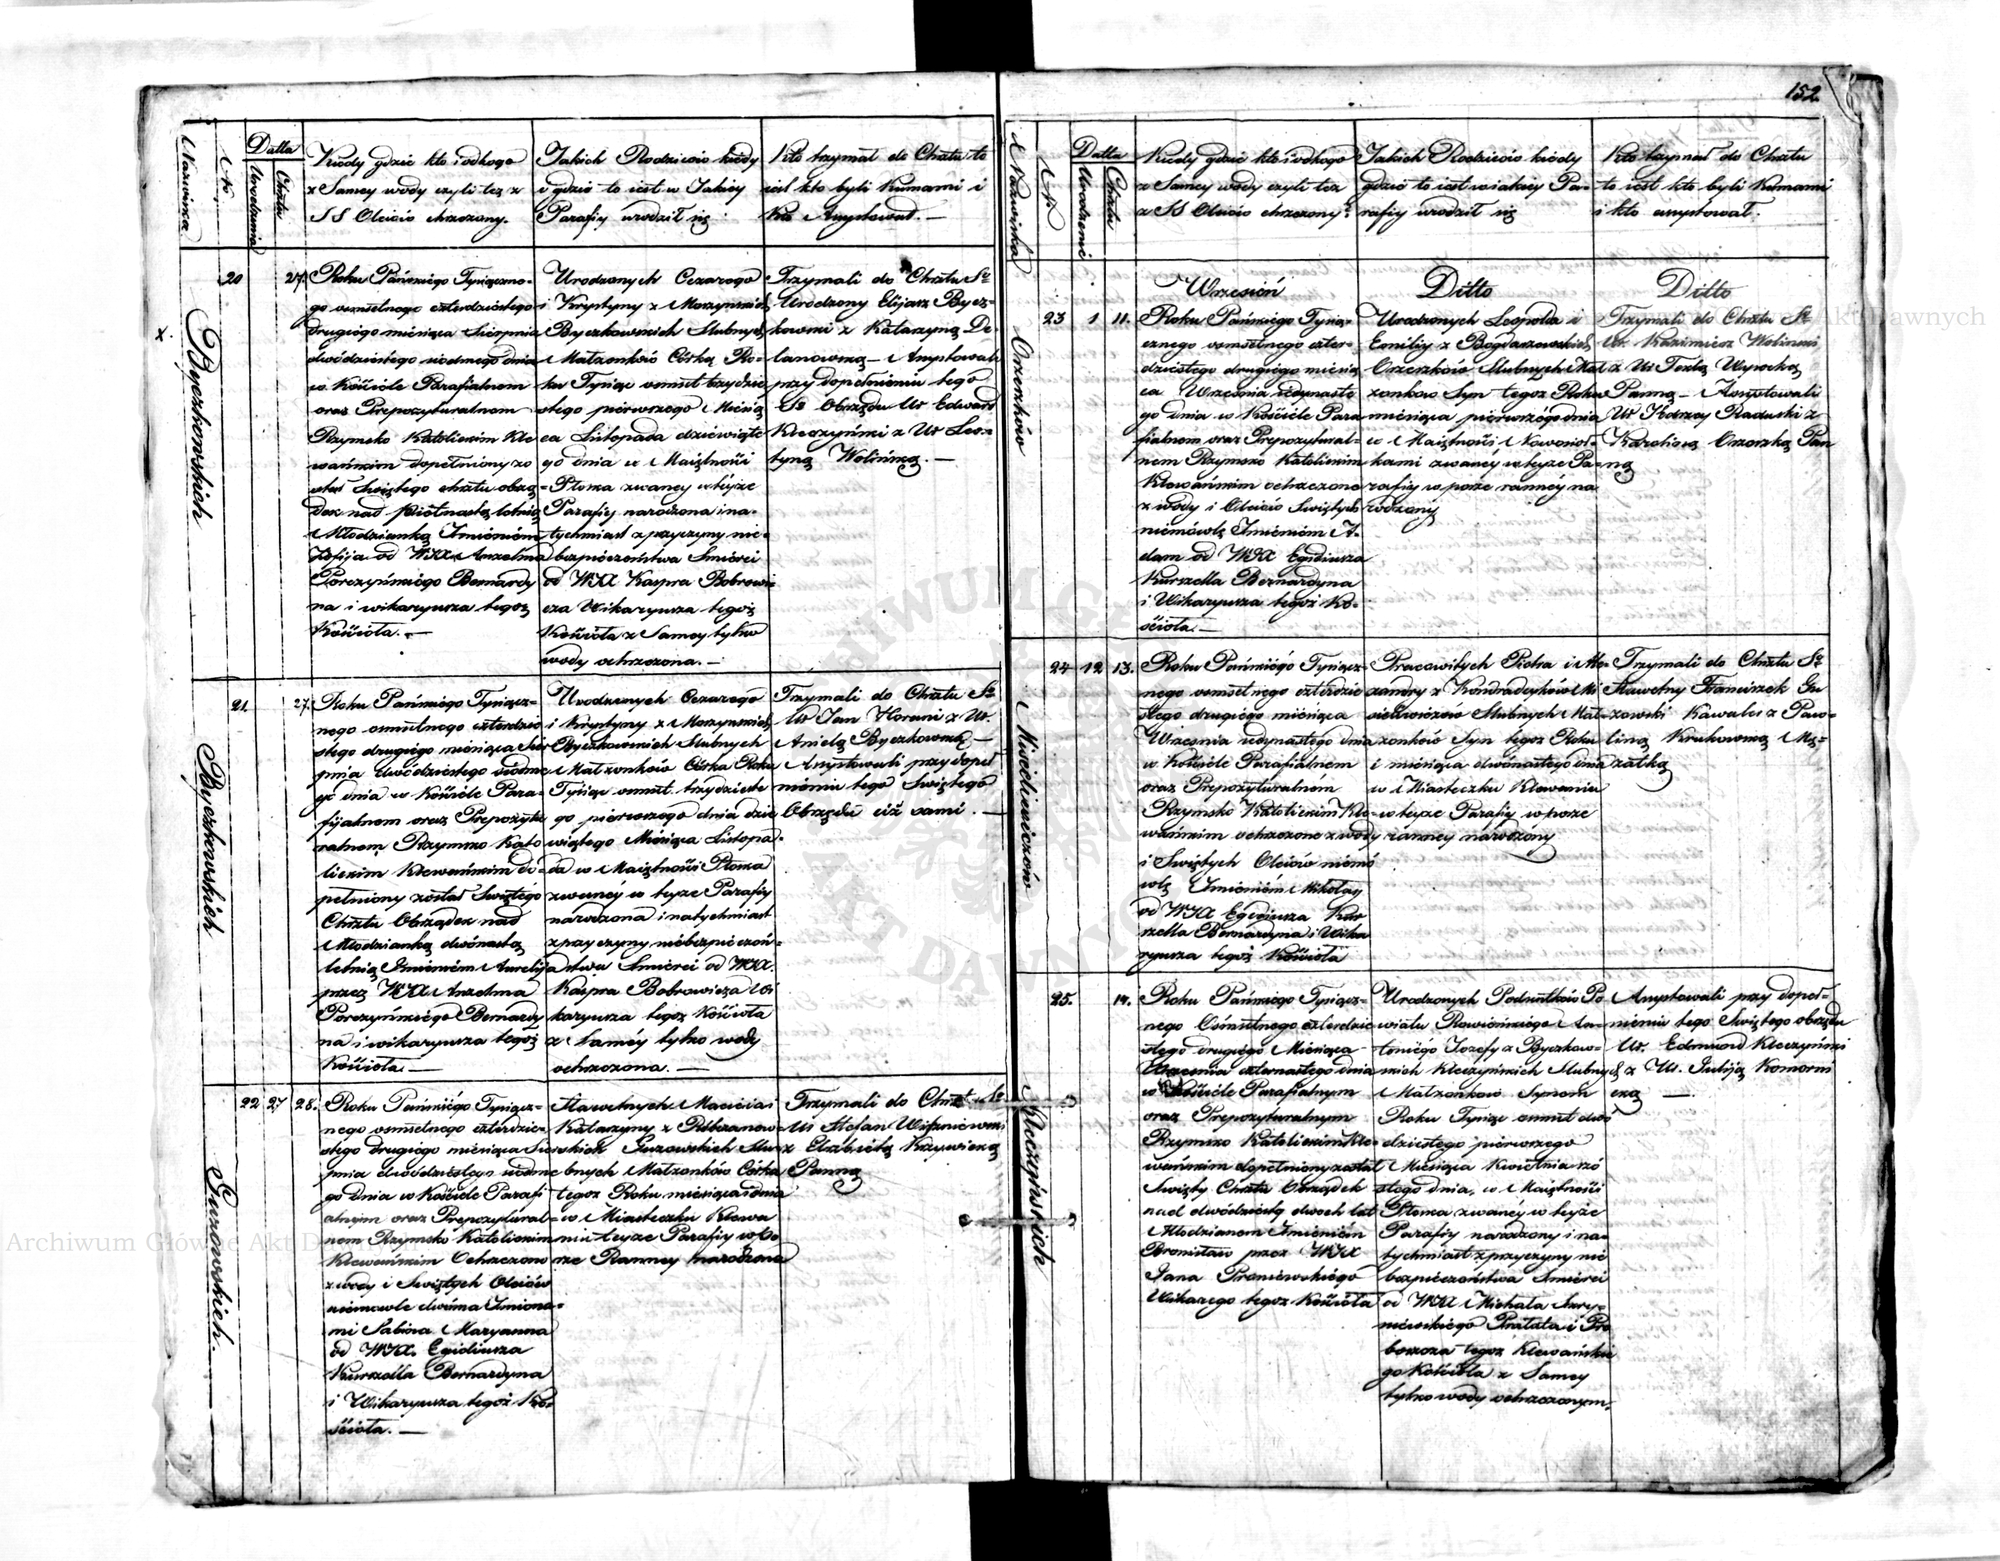 152
Nazwiska
N.
Datta
Urodzenia
Chrztu
Kiedy gdzie kto i od kogo
z Samey wody czyli tez z
SS Oleiów chrzczony.
Jakich Rodziców kiedy
i gdzie to iest w Jakiey
Parafiy urodził się
Kto trzymał do Chrztu to
iest kto byli Kumami i
Kto Asystował. —
X.
Byczkowskich
20
27.
Roku Pańskiego Tysiączne-
go osmsetnego czterdziestego
drugiego miesiąca Sierpnia
dwódziestego siodmego dnia
w Kościele Parafialnem
oraz Prepozyturalnem
Rzymsko Katolickim Kle
wańskim dopełniony zo
stał Swiętego chrztu obrzą-
dek nad piętnastą letnią
Młodzianką Imieniem
Zofija od WJX Anzelma
Porczyńskiego Bernardy
na i wikaryusza tegoż
Kościoła. —
Urodzonych Cezarego
i Krystyny z Morzynskich
Byczkowskich Slubnych
Małzonków Córką Ro-
ku Tysiąc osmset trzydzie
stego pierwszego Miesią
ca Listopada dziewiąte
go dnia w Maiętności
Płoska zwaney w teyże
Parafiy narodzona i na-
tychmiast z przyczyny nie-
bezpieczeństwa Smierci
od WJX Kaspra Bobrowi
cza Wikaryusza tegoż
Kościoła z Samey tylko
wody ochrzczona. —
Trzymali do Chrztu So
Urodzony Elijasz Bycz-
kowski z Katarzyną De-
lanowską — Asystowali
przy dopełnieniu tego
So Obrzędu Ur Edward
Kleczyński z Ur Leo-
tyną Wolińską. —
Byczkowskich
21
27.
Roku Pańskiego Tysiącz-
nego osmsetnego czterdzie
stego drugiego miesiąca Sier
pnia dwódziestego siodme
go dnia w Kościele Para-
fijalnem oraz Prepozytu
ralnem Rzymsko Kato
lickim Klewańskim do-
pełniony został Swiętego
Chrztu Obrządek nad
Młodzianką dwónastą
letnią Imieniem Aurelija
przez WJX Anzelma
Porczyńskiego Bernardy
na i wikaryusza tegoż
Kościoła. —
Urodzonych Cezarego
i Krystyny z Morzynskich
Byczkowskich Slubnych
Małzonków Córka Roku
Tysiąc osmset trzydzieste
go pierwszego dnia dzie
wiątego Miesiąca Listopa-
da w Maiętności Płoska
zwaney w teyże Parafiy
narodzona i natychmiast
z przyczyny niebezpieczeń-
stwa Smierci od WJX.
Kaspra Bobrowicza Wi
karyusza tegoż Kościoła
z Saméy tylko wody
ochrzczona. —
Trzymali do Chrztu So
Ur Jan Horani z Ur.
Anielą Byczkowską —
Asystowali przy dopeł
nieniu tego Swiętego
Obrzędu ciż sami. —
Guzowskich.
22
27
28.
Roku Pańskiego Tysiącz-
nego osmsetnego czterdzie-
stego drugiego miesiąca Sier
pnia dwódziestego siodme
go dnia w Kościele Parafi
alnym oraz Prepozytural-
nem Rzymsko Katolickim
Klewańskim Ochrzczono
z wody i Swiętych Oleiów
niemowle dwóma Imiona-
mi Sabina Maryanna
od WJX. Egidiusza
Kurszella Bernardyna
i Wikaryusza tegoż Ko-
ścioła. —
Sławetnych Macieia i
Katarzyny z Rebzanow-
skich Guzowskich Slu-
bnych Małzonków Córka
tegoz Roku miesiąca i dnia
w Miasteczku Klewa
niu teyże Parafiy w Po
rze Ranney narodzona
Trzymali do Chrztu So
Ur Stefan Wiszniewski
z Elżbietą Krzywicką
Panną
Nazwiska
N.
Datta
Urodzenia
Chrztu
Kiedy gdzie kto i od kogo
z Samey wody czyli tez
z SS Oleiów chrzczony.
Jakich Rodziców kiedy
gdzie to iest w iakiey Pa-
rafiy urodził się
Kto trzymał do Chrztu
to iest kto byli Kumami
i kto assystował.
Wrzesień
Ditto
Ditto
Orzeszków
23
1
11.
Roku Pańskiego Tysią-
cznego osmsetnego czter-
dziestego drugiego miesią
ca Wrzesnia iedynaste
go dnia w Kościele Para
fialnem oraz Prepozytural-
nem Rzymsko Katolickim
Klewańskim ochrzczono
z wody i Oleiów Swiętych
niemówlę Imieniem A-
dam od WJX Egidiusza
Kurszella Bernardyna
i Wikaryusza tegoż Ko-
ścioła. —
Urodzonych Leopolda i
Emiliy z Bogdaszewskich
Orzeszków Slubnych Mał
zonków Syn tegoz Roku
miesiąca pierwszego dnia
w Maiętności Nowosioł-
kami zwaney w teyże Pa-
rafiy w porze ranney na
rodzony
Trzymali do Chrztu So
Ur. Kazimierz Wolinski
z Ur Teklą Wysocką
Panną — Assystowali
Ur Ksawery Raduski z
Karoliną Orzeszką Pan
ną
Niceliewiczów
24
12
13.
Roku Pańskiego Tysiącz-
nego osmsetnego czterdzie
stego drugiego miesiąca
Wrzesnia iedynastego dnia
w Kościele Parafialnem
oraz Prepozyturalném
Rzymsko Katolickim Kle-
wańskim ochrzczono z wody
i Swiętych Oleiów niemó
wlę Imieniém Mikołay
od WJX Egidiusza Kur
szella Bernardyna i Wika
ryusza tegoż Kościoła
Pracowitych Piotra i Ale-
xandry z Kondradczyków Ni
celiewiczów Slubnych Mał-
zonków Syn tegoz Roku
i miesiąca dwónastego dnia
w Miasteczku Klewaniu
w teyże Parafiy w porze
ranney narodzony
Trzymali do Chrztu So
Sławetny Franciszek Gu
zowski Kawaler z Paw-
liną Krukowską Mę-
zatką
Kleczyńskich
25.
14.
Roku Pańskiego Tysiącz-
nego Osmsetnego czterdzie
stego drugiego Miesiąca
Wrzesnia czternastego dnia
w Kościele Parafialnym
oraz Prepozyturalnym
Rzymsko Katolickim Kle-
wańskim dopełniony został
Swięty Chrztu Obrządek
nad dwódziestą dwóch lat
Młodzianem Imieniém
Bronisław przez WJX
Jana Praniewskiego
Wikarego tegoz Kościoła
Urodzonych Podsętków Po
wiatu Rowienskiego An-
toniégo Jozefy z Byczkow-
skich Kleczyńskich Slubnych
Małżonków Synem
Roku Tysiąc osmset dwó
dziestego pierwszego
Miesiąca Kwietnia szó
stego dnia, w Maiętności
Płoska zwanéy w teyże
Parafiy narodzony i na-
tychmiast z przyczyny nie
bezpieczeństwa Smierci
od WJX Michała Jury-
niewskiego Prałata i Pro
boszcza tegoz Klewańskie
go Kościoła z Samey
tylko wody ochrzczonym.
Asystowali przy dopeł-
nieniu tego Swiętego obrzędu
Ur. Edmund Kleczyński
z Ur. Juliją Komorni
cką —
Archiwum Główne Akt Dawnych
Archiwum Główne Akt Dawnych
ARCHIWUM GŁÓWNE
AKT DAWNYCH